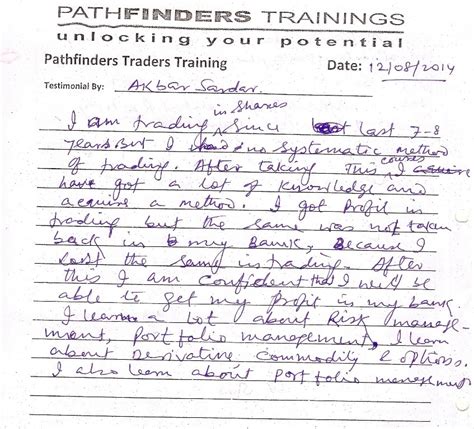 PATHFINDERS TRAININGS
unlocking your potential
Pathfinders Traders Training Date: 12/08/2014
Testimonial By: Akbar Sardar.
in shares
I am trading since last 7-8
years But I had no systematic method
of trading. After taking This courses I
have got a lot of knowledge and
acquire a method. I got Profit in
trading but the same was not taken
back in my Bank, Because I
Lost the same in trading. After
this I am confident that I will be
able to get my Profit in my bank.
I learn a lot about Risk manage-
ment, Portfolio management, I learn
about Derivative Commodity & options.
I also learn about Portfolio management